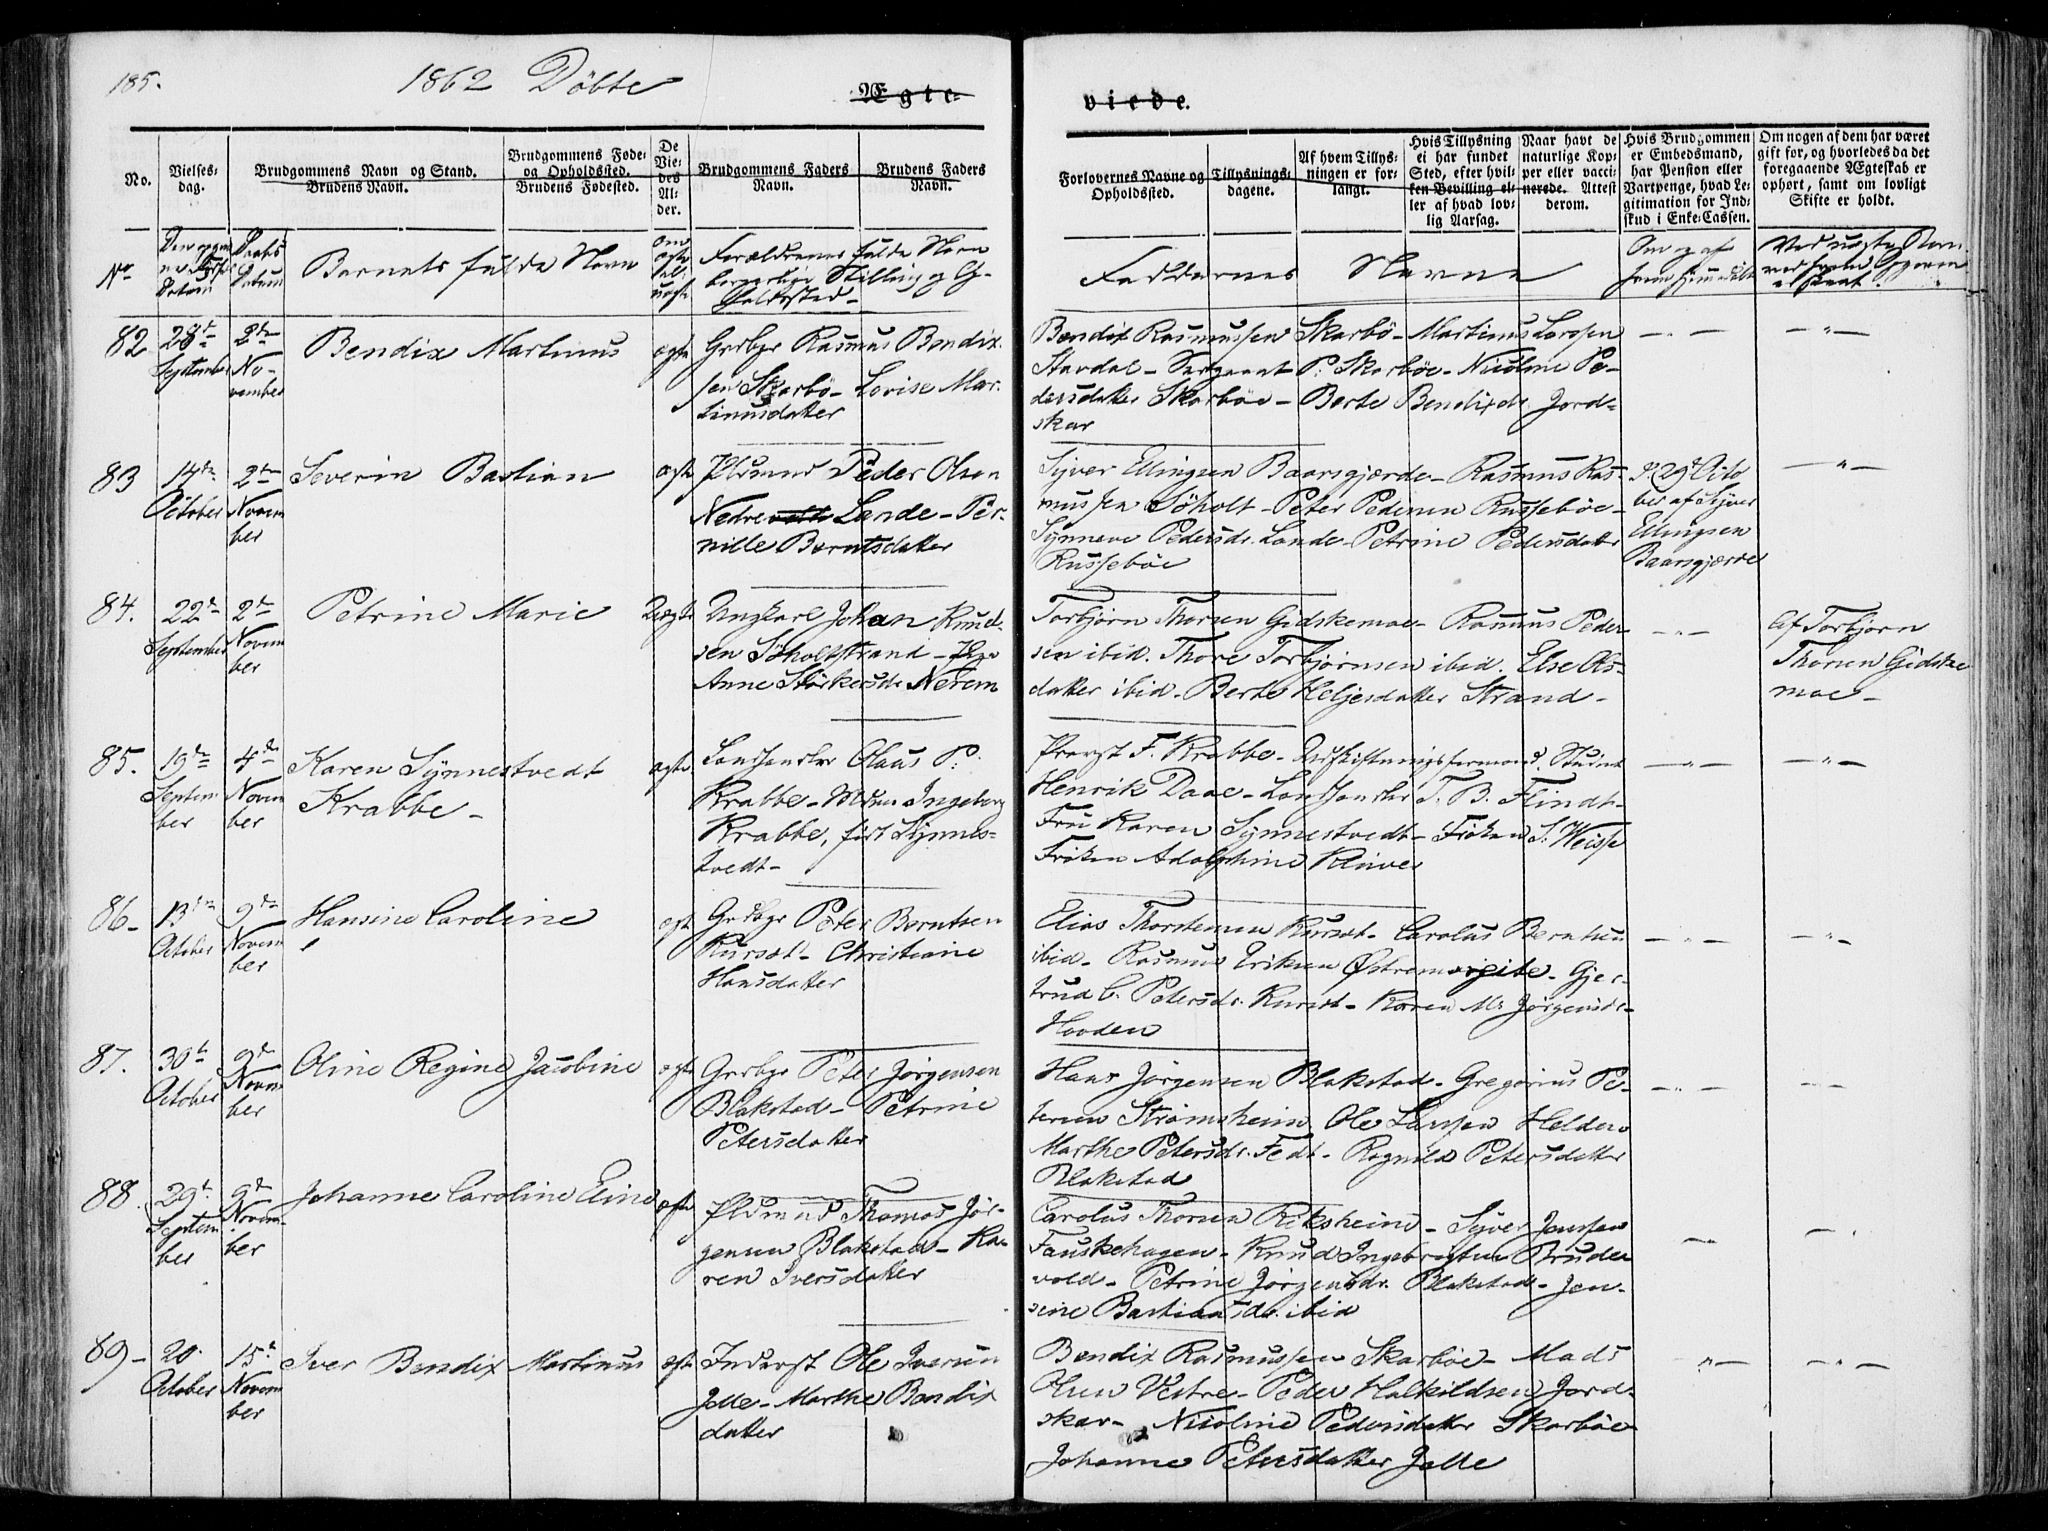 185.
1862 Döbte
Ægte=
viede.
No.
Vielses=
dag.
Brudgommens Navn og Stand.
Brudens Navn.
Brudgommens Føde=
og Opholdssted.
Brudens Fødested.
De
Vie=
des
Al=
der.
Brudgommens Faders
Navn.
Brudens Faders
Navn.
Forlovernes Navne og
Opholdssted.
Tillysnings=
dagene.
Af hvem Tillys=
ningen er for=
langt.
Hvis Tillysning
ei har fundet
Sted, efter hvil=
ken Bevilling el=
ler af hvad lov=
lig Aarsag.
Naar havt de
naturlige Kop=
per eller vacci=
nerede. Attest
derom.
Hvis Brudgommen
er Embedsmand,
har Pension eller
Vartpenge, hvad Le=
gitimation for Ind=
skud i Enke=Cassen.
Om nogen af dem har været
gift før, og hvorledes da det
foregaaende Ægteskab er
ophørt, samt om lovligt
Skifte er holdt.
No
Daabs
Datum
Barnets fulde Navn
Forældrenes fulde Navn
borgerlige Stilling og Op-
holdssted
Faddernes Navne
82
28de
September
2den
No-
vember
Bendix Martinus
ægte
Grbgr Rasmus Bendix-
sen Skarbö - Lovise Mar-
tinusdatter
Bendix Rasmussen Skarbö - Martinus Larssen
Stavdal - Sergeant P. Skarböe - Nicoline Pe-
dersdatter Skarböe - Berte Bendixdr. Jord-
skar
83
14de
October
2den
Novem
ber
Severin Bastian
ægte
Plsmand Peder Olsen
Nedre Lande - Per-
nille Berntsdatter
Syver Ellingsen Baarsgjærde - Rasmus Ras-
mussen Söholt - Peter Pedersen Russeböe -
Synneve Pedersdr. Lande - Petrine Pedersdatter
Russeböe
d. 29d Octo
ber af Syver
Ellingsen
Baarsgjærde
84.
22de
September
2den
Novem
ber
Petrine Marie
Uægte
Ungkarl Johan Knud-
sen Söholtstrand - Pige
Anne Störkersdr. Nerem
Torbjørn Thorsen Gidskemoe - Rasmus Peder-
sen ibid. Thore Torbjørnsen ibid. Else Ols-
datter ibid - Berte Heljesdatter Strand -
Af Torbjørn
Thorsen Gidske
moe -
85.
19de
Septem
ber
4de
Novem
ber
Karen Synnestvedt
Krabbe -
ægte
Landhandler Olaus P.
Krabbe - Mdme Ingeborg
Krabbe, født Synnes-
tvedt -
Provst F. Krabbe - Udskiftningsformand, Student
Henrik Daae - Landhandler T. B. Flindt -
Fru Karen Synnestvedt - Frøken S. Weisse
Frøken Adolphine Kliwer
86 -
13de
October
9de
Novem
ber
Hansine Caroline
ægte
Grdbgr Peter Berntsen
Kursæt - Christiane
Hansdatter
Elias Thorstensen Kursæt - Carolus Berntsen
ibid - Rasmus Eriksen Østremsgjete - Gjer-
trud C. Petersdr. Kursæt - Karen M. Jørgensdr. -
Hovden
87.
30te
October
9de
Novem
ber
Oline Regine Jacobine
ægte
Grbgr Peter Jørgensen
Blakstad - Petrine
Petersdatter
Hans Jørgensen Blakstad - Gregorius Pe-
tersen Strømsheim Ole Larssen Helden
Marthe Petersdr. Fedt - Ragnild Petersdatter
Blakstad
88.
29de
Septem
ber
9de
Novem-
ber
Johanne Caroline Eline
ægte
Plsmand Thomas Jør-
gensen Blakstad - Ka-
ren Iversdatter
Carolus Thorsen Riksheim - Syver Jenssen
Fauskehagen - Knud Ingebrigtsen Bruder
vold - Petrine Jørgensdr. Blakstad - Jen-
sine Bastiansdr. ibid
89 -
20.
October
15de
Novem
ber
Iver Bendix Martinus
ægte
Inderst Ole Iversen
Jelle - Marthe Bendix
datter
Bendix Rasmussen Skarböe - Mads
Olsen Vestre - Peder Halkildsen Jord-
skar - Nicoline Pedersdatter Skarböe
Johanne Petersdatter Jelle